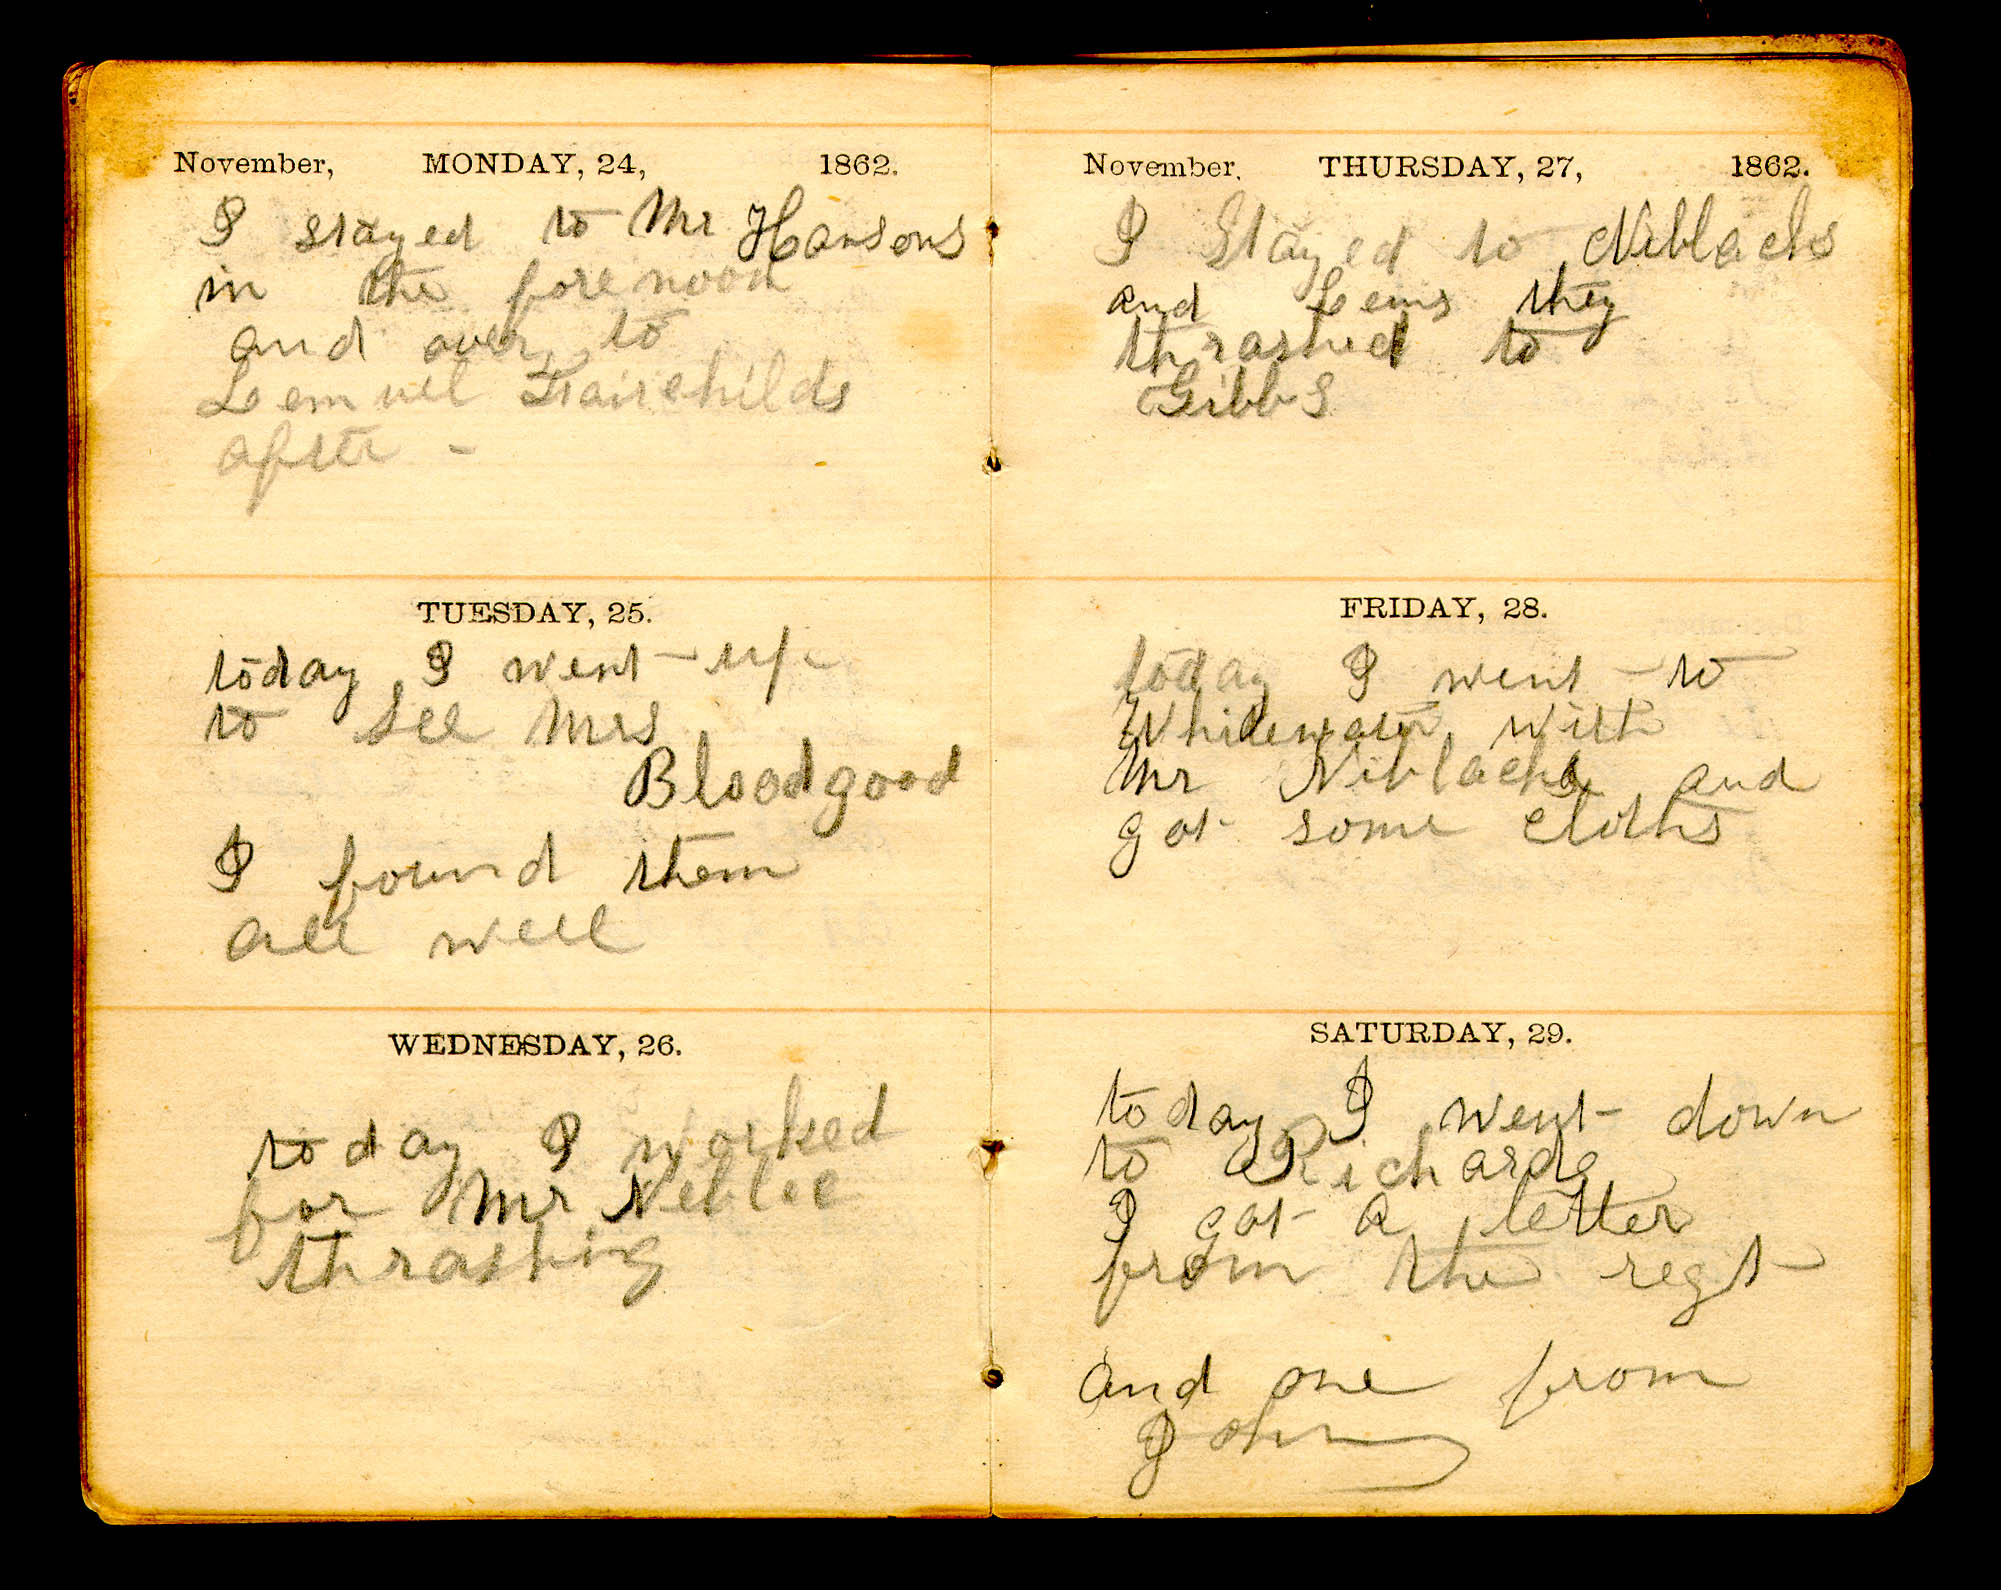 November, MONDAY, 24, 1862.
I stayed to Mr Hansons
in the forenoon
and over to
Lemuel Fairchilds
after -
TUESDAY, 25.
today I went up
to see Mrs
Bloodgood
I found them
all well
WEDNESDAY, 26.
today I worked
for Mr Neblie
thrashing
November, THURSDAY, 27, 1862.
I Stayed to Niblacks
and Lems they
thrashed to
Gibbs
FRIDAY, 28.
today I went to
Whitewater with
Mr Niblacks and
got some cloths
SATURDAY, 29.
today I went down
to Richards
I got a letter
from the regt
and one from
John